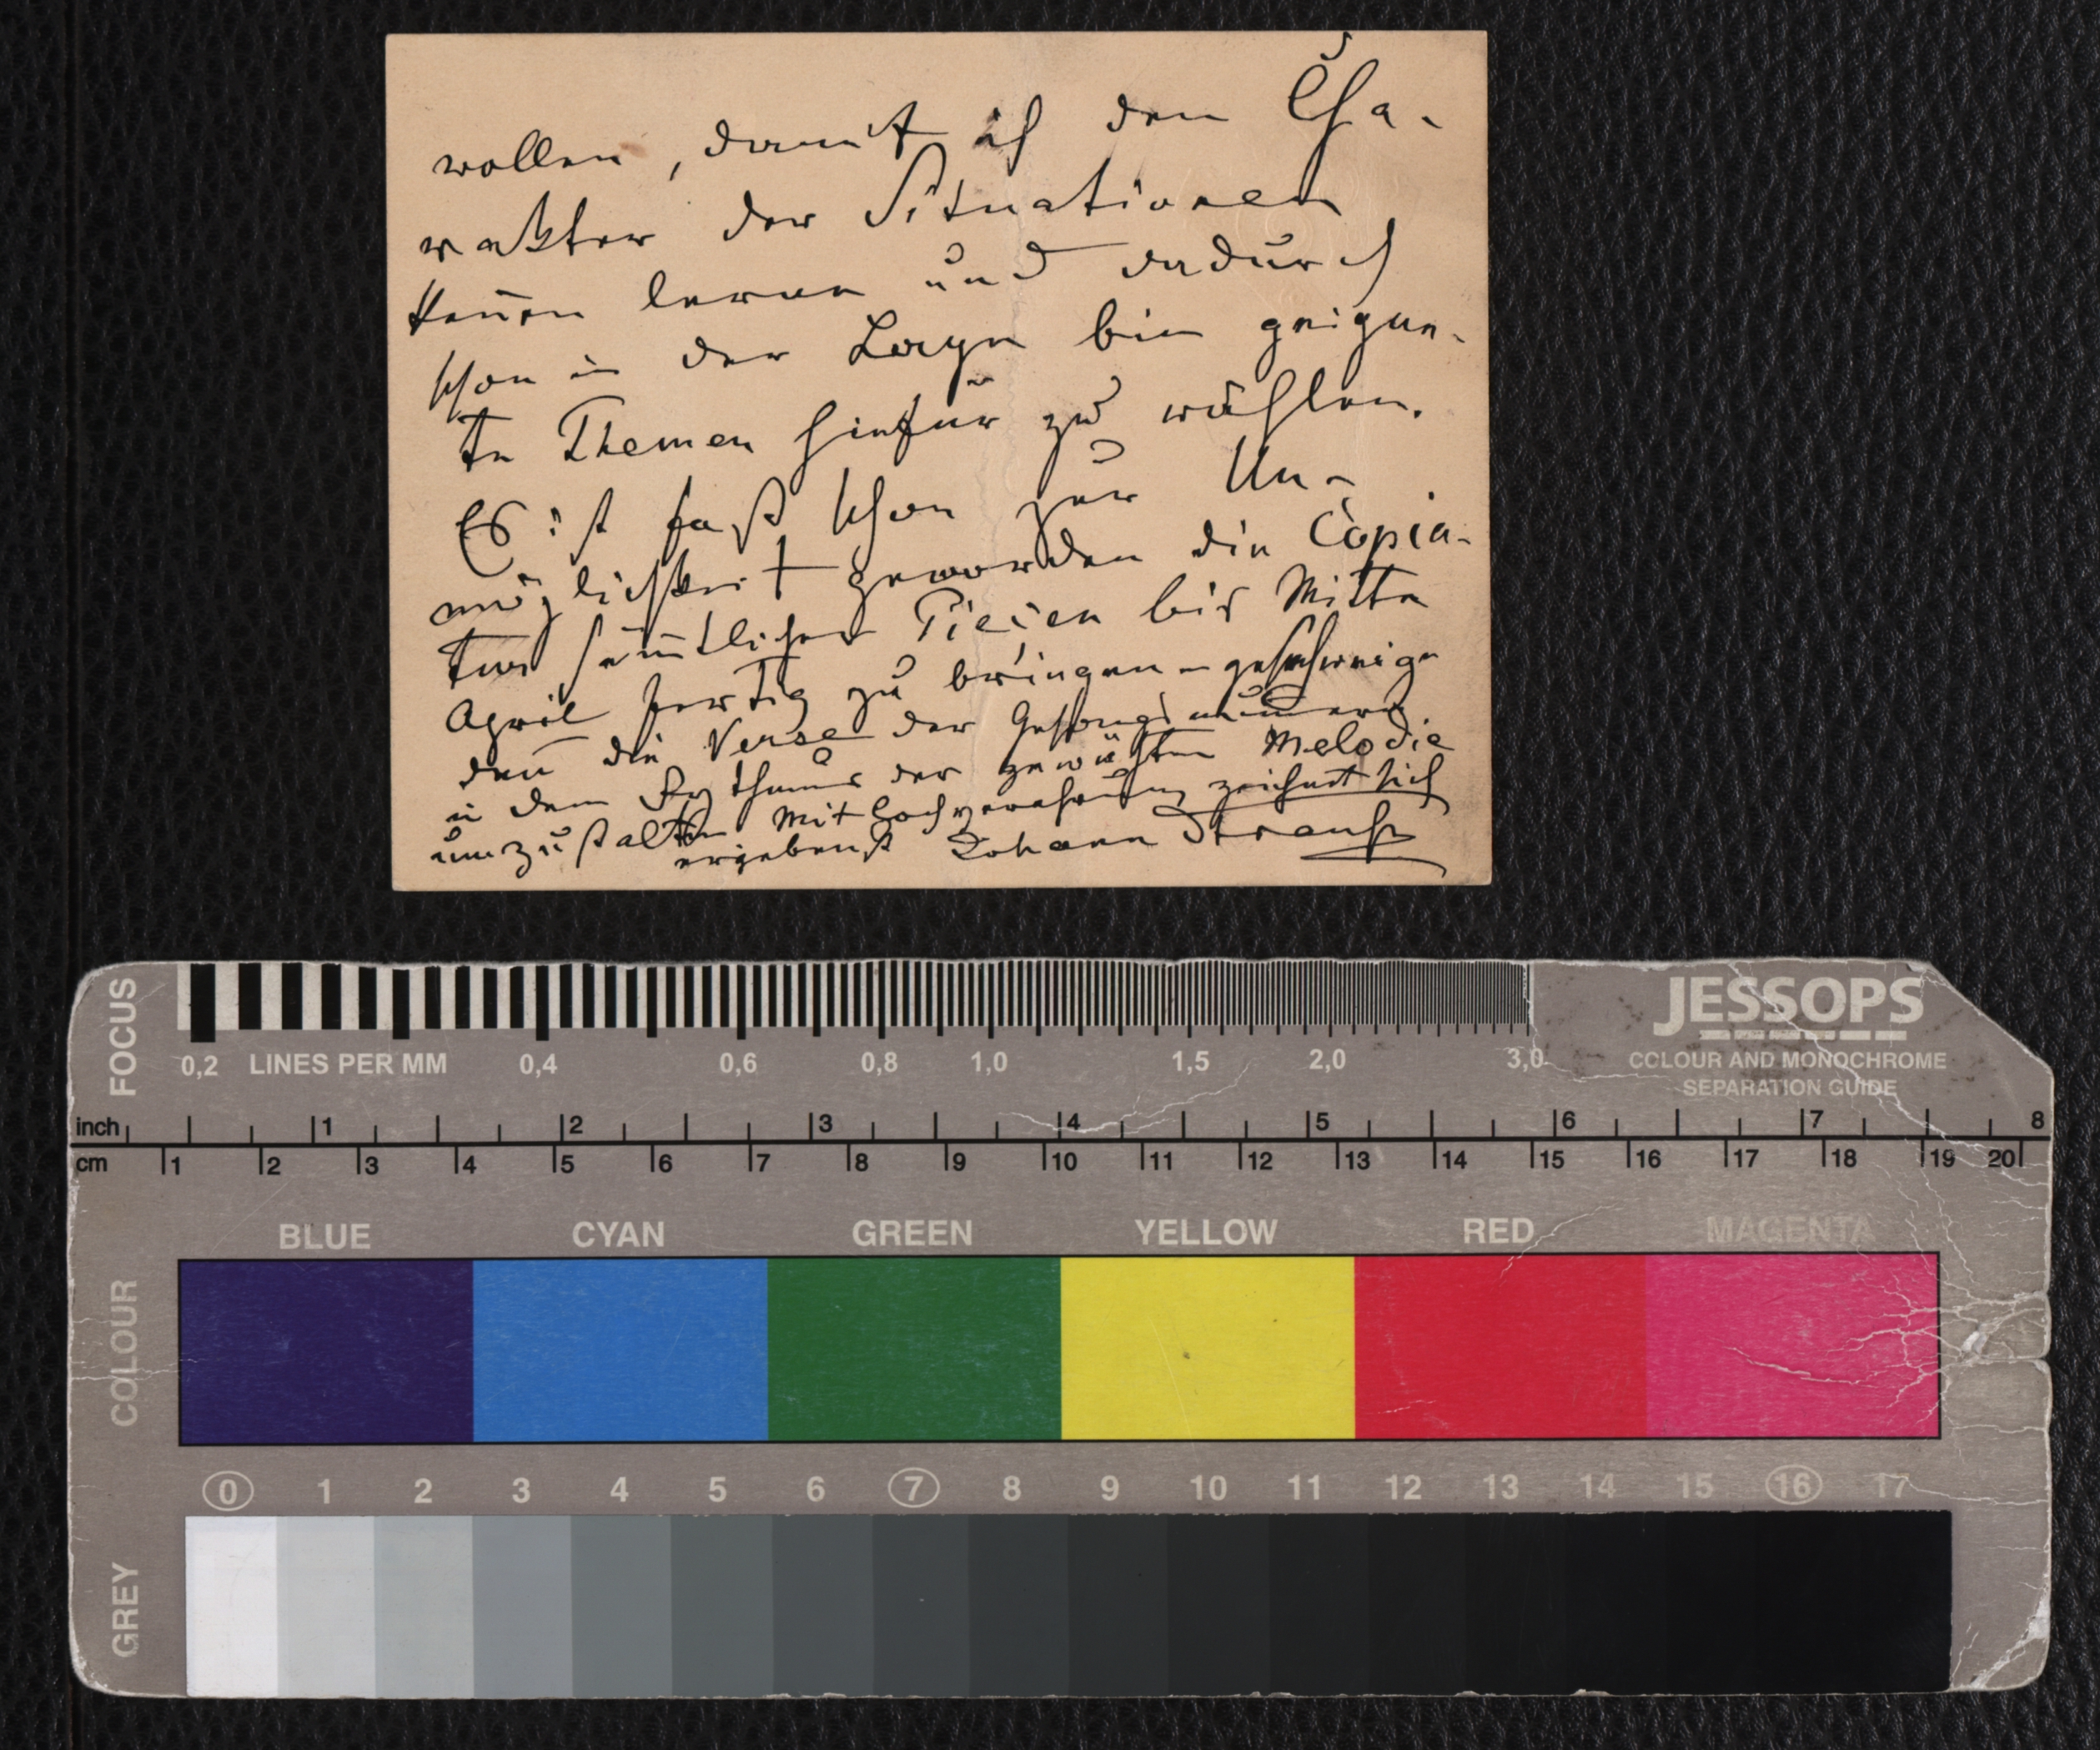 wollen, damit ich den Cha-
rakter der Situationen
kennen lerne und dadurch
schon in der Lage bin geigne-
te Themen hiefür zu wählen.
Es ist fast schon zur Un-
möglichkeit geworden die Copia-
tur sämtlicher Piecen bis Mitte
April fertig zu bringen – geschweige
den die Verse der Gesangsnummern
in dem Rythmus der gewählten Melodie
umzugestalten. Mit Hochverehrung zeichnet sich
ergebenst Johann Strauss
FOCUS
JESSOPS
0,2 LINES PER MM 0,4 0,6 0,8 1,0 1,5 2,0 3,0
COLOUR AND MONOCHROME
SEPARATION GUIDE
inch 1 2 3 4 5 6 7 8
cm 1 2 3 4 5 6 7 8 9 10 11 12 13 14 15 16 17 18 19 20
BLUE CYAN GREEN YELLOW RED MAGENTA
COLOUR
0 1 2 3 4 5 6 7 8 9 10 11 12 13 14 15 16 17
GREY